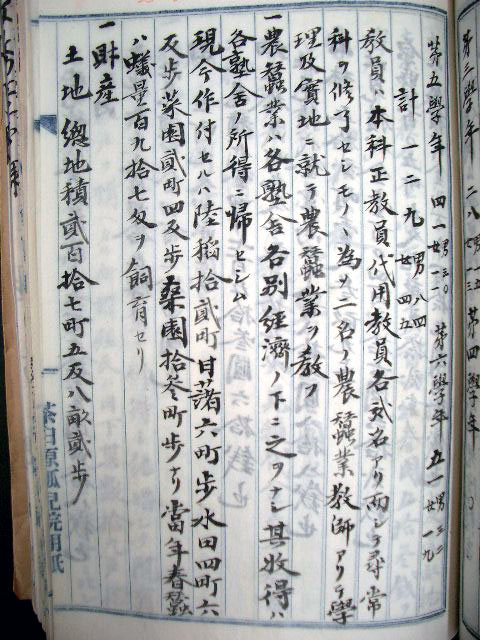 第三學年 二八 男一五 女一三 第四學年
第五學年 四一 男三〇 女一一 第六學年 五一 男三二 女一九
計 一二九 男八四 女四五
教員ハ本科正教員代用教員各貳名アリ而シテ尋常
科ヲ修了セシモノヽ為メ二名ノ農蠶業教師アリテ學
理及實地ニ就テ農蠶業ヲ教フ
一農蠶業ハ各塾舎各別經濟ノ下ニ之ヲナシ其收得ハ
各塾舎ノ所得ニ帰セシム
現今作付セルハ陸稲拾貳町甘藷六町歩水田四町六
反歩菜園貳町四反歩桑園拾参町歩ナリ當年春蠶
ハ蟻量百九拾七匁ヲ飼育セリ
一財産
土地 總地積貳百拾七町五反八畝貳歩
茶臼原孤児院用紙